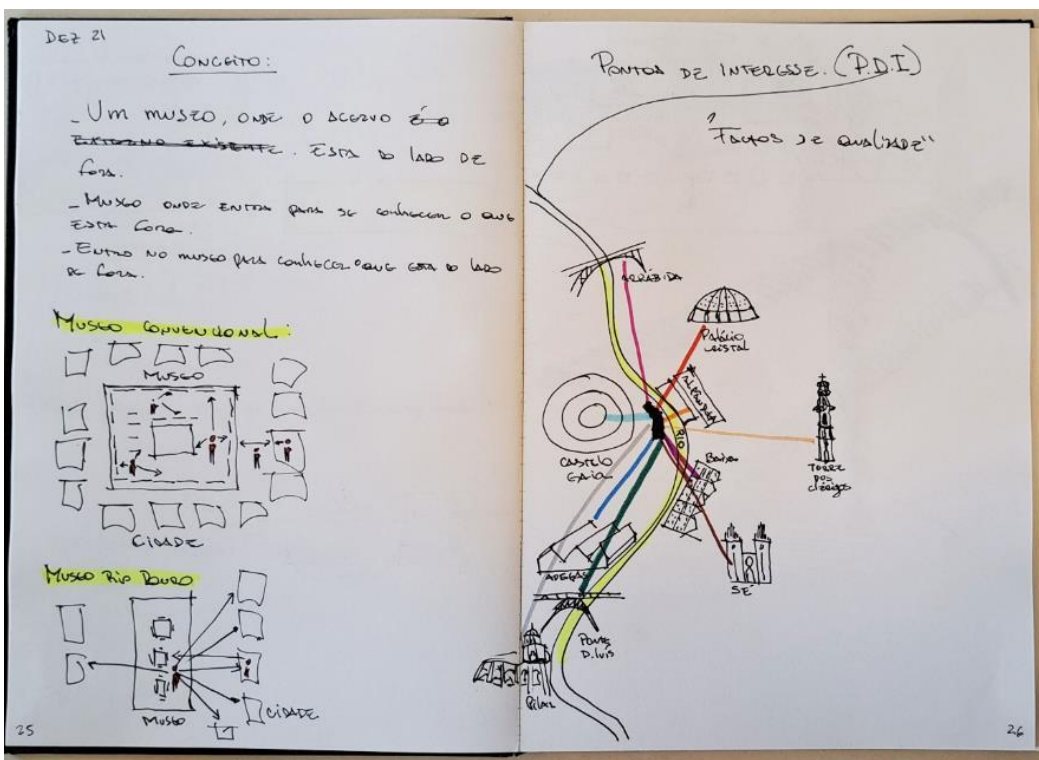 DEZ 21
CONCEITO:
_ UM MUSEO, ONDE O ACERVO É O
EXTERNO EXISTENTE. ESTA DO LADO DE
FORA.
_ MUSEO ONDE ENTRA PARA SE CONHECER O QUE
ESTA FORA.
_ ENTRO NO MUSEO PARA CONHECER O QUE ESTA DO LADO
DE FORA.
MUSEO CONVENCIONAL:
MUSEO
CIDADE
MUSEO RIO DOURO
MUSEO
CIDADE
25
PONTOS DE INTERESSE. (P.D.I)
"FACTOS DE QUALIDADE"
ARRÁBIDA
PALÁCIO
CRISTAL
ALFANDEGA
RIO
CASTELO
GAIA
BAIXA
TORRE
DOS
CLÉRIGOS
ADEGAS
SÉ
PONTE
D. LUÍS
PILAR
26